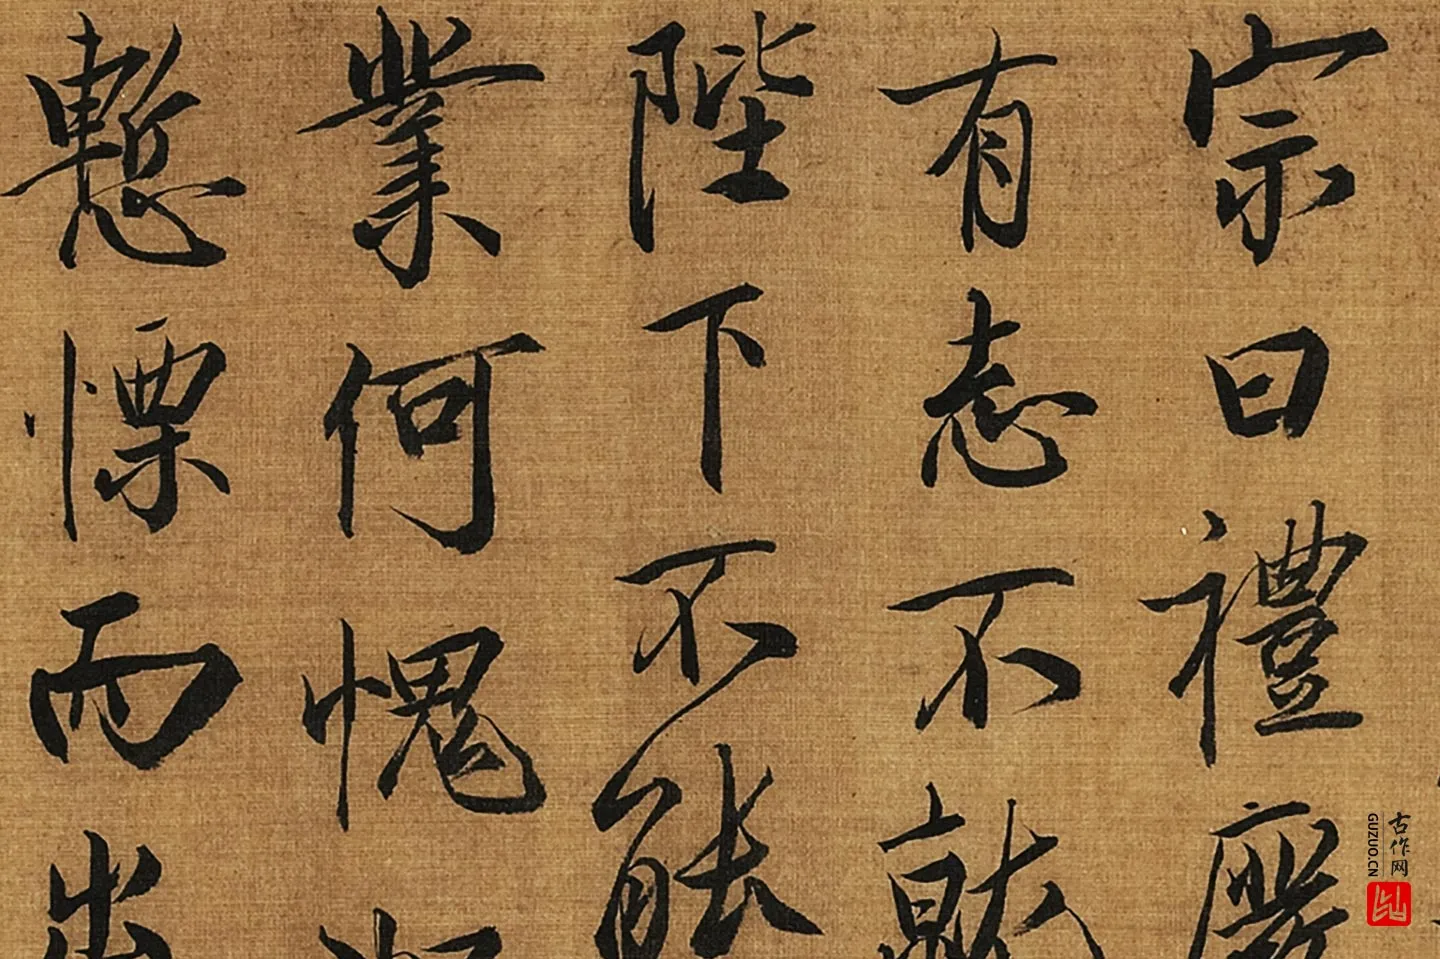 宗曰禮廢
有志不就
陛下不能
業何愧
慙慄而出
古作网
GUZUO.CN